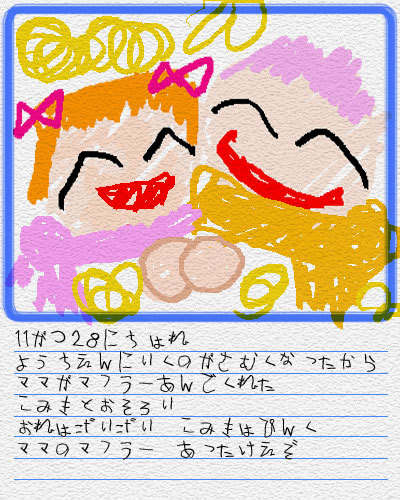 11がつ28にち はれ
ようちえんにいくのがさむくなったから
ママがマフラーあんでくれた
こみまとおそろい
おれはきいきい こみまはぴんく
ママのマフラー あったけえぞ